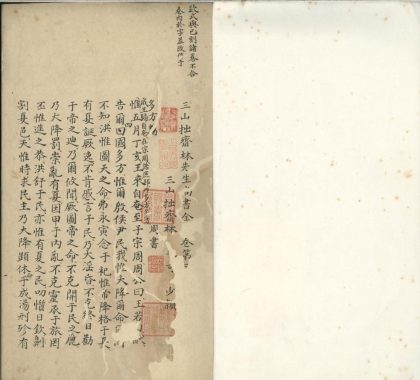 款式與已刻諸卷不合
卷內於字並改作于
三山拙齋林先生尚書全　卷第三
三山拙齋林　之　少穎
多方　周書
惟五月丁亥王來自奄至于宗周周公曰王若
告爾四國多方惟爾殷侯尹民我惟大降爾命
不知洪惟圖天之命弗永寅念于祀惟帝降格于夏
有夏誕厥逸不肯慼言于民乃大淫昏不克終日勸
于帝之迪乃爾攸聞厥圖帝之命不克開于民之麗
乃大降罰崇亂有夏因甲于內亂不克靈承于旅罔
丕惟進之恭洪舒于民亦惟有夏之民叨懫日欽劓
割夏邑天惟時求民主乃大降顯休于成湯刑殄有